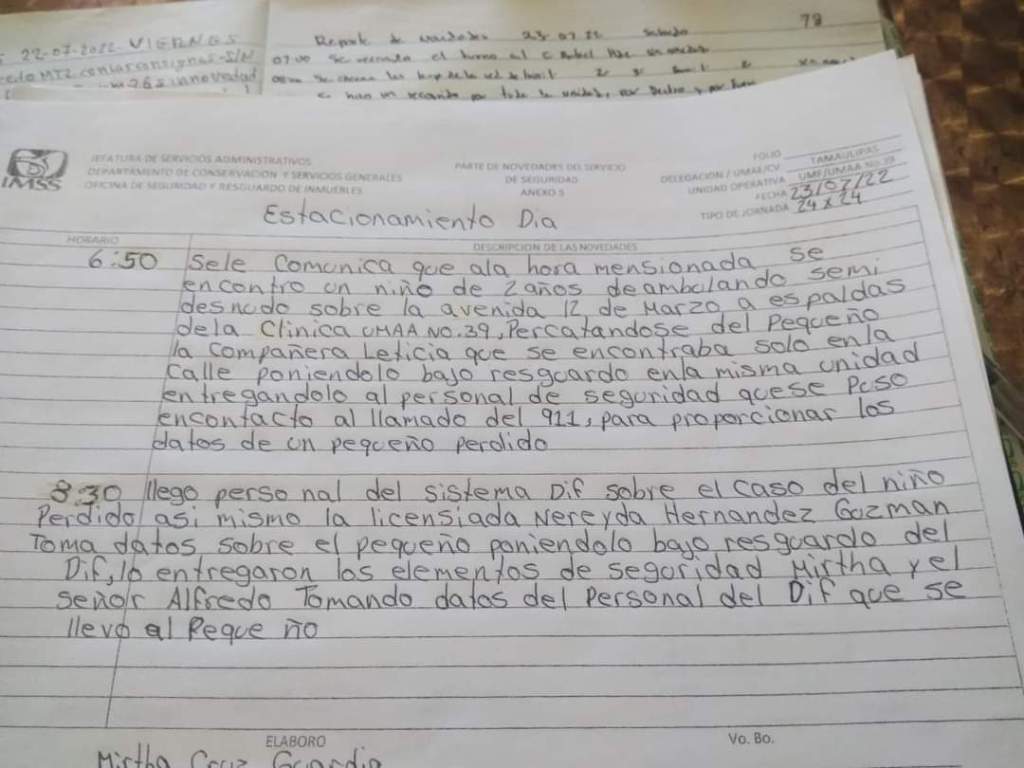 22-07-2022-VIERNES
Reporte de 23 07 22 Sabado
78
07:00 Se el turno al c
innovedad
IMSS
JEFATURA DE SERVICIOS ADMINISTRATIVOS
DEPARTAMENTO DE CONSERVACION Y SERVICIOS GENERALES
OFICINA DE SEGURIDAD Y RESGUARDO DE INMUEBLES
PARTE DE NOVEDADES DEL SERVICIO
DE SEGURIDAD
ANEXO 5
FOLIO
DELEGACIÓN / UMAE/CV TAMAULIPAS
UNIDAD OPERATIVA UMF/UMAA No.39
FECHA 23/07/22
TIPO DE JORNADA 24 x 24
Estacionamiento Dia
HORARIO
DESCRIPCION DE LAS NOVEDADES
6:50 Sele Comunica que ala hora mensionada se
encontro un niño de 2 años deambulando semi
desnudo sobre la avenida 12 de Marzo a espaldas
dela Clinica UMAA NO.39, Percatandose del Pequeño
la Compañera Leticia que se encontraba solo enla
Calle poniendolo bajo resguardo enla misma unidad
entregandolo al personal de seguridad quese Puso
encontacto al llamado del 911, para proporcionar los
datos de un pequeño perdido
8:30 llego personal del sistema Dif sobre el caso del niño
Perdido asi mismo la licensiada Nereyda Hernandez Guzman
Toma datos sobre el pequeño poniendolo bajo resguardo del
Dif, lo entregaron los elementos de seguridad Mirtha y el
señor Alfredo Tomando datos del Personal del Dif que se
llevo al Pequeño
ELABORO
Vo. Bo.
Mirtha Cruz Guardia